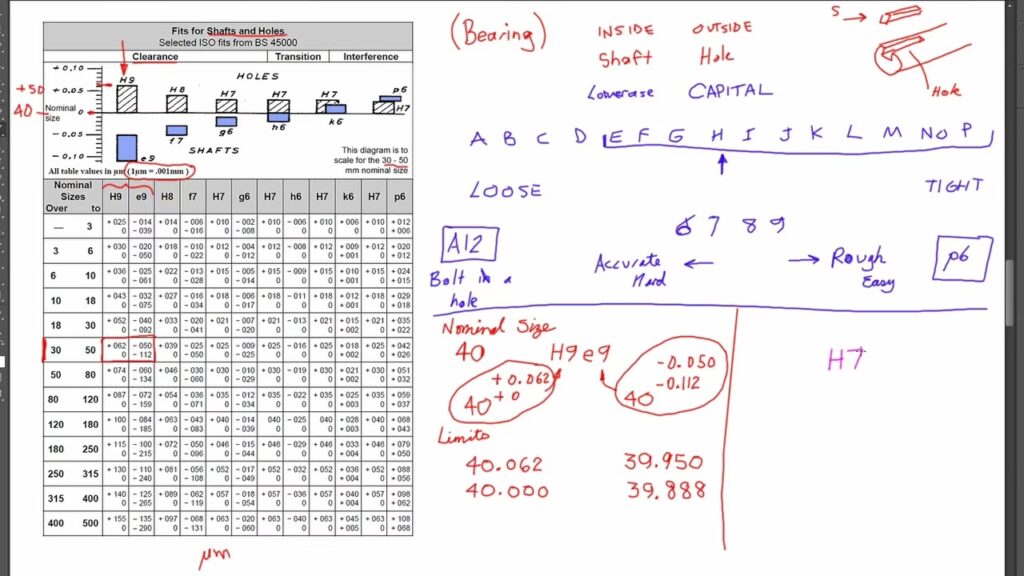 Fits for Shafts and Holes
Selected ISO fits from BS 45000
Clearance Transition Interference
+0.10
+0.05
Nominal size
0
-0.05
-0.10
HOLES
SHAFTS
H9 H8 H7 H7 H7 p6
H7
e9 f7 g6 h6 k6
+50
40
This diagram is to
scale for the 30 - 50
mm nominal size
All table values in µm (1µm = .001mm)
Nominal
Sizes
Over to
H9 e9 H8 f7 H7 g6 H7 h6 H7 k6 H7 p6
— 3 +025 -014 +014 -006 +010 -002 +010 -006 +010 +006 +010 +012
0 -039 0 -016 0 -008 0 0 0 0 0 +006
3 6 +030 -020 +018 -010 +012 -004 +012 -008 +012 +009 +012 +020
0 -050 0 -022 0 -012 0 0 0 +001 0 +012
6 10 +036 -025 +022 -013 +015 -005 +015 -009 +015 +010 +015 +024
0 -061 0 -028 0 -014 0 0 0 +001 0 +015
10 18 +043 -032 +027 -016 +018 -006 +018 -011 +018 +012 +018 +029
0 -075 0 -034 0 -017 0 0 0 +001 0 +018
18 30 +052 -040 +033 -020 +021 -007 +021 -013 +021 +015 +021 +035
0 -092 0 -041 0 -020 0 0 0 +002 0 +022
30 50 +062 -050 +039 -025 +025 -009 +025 -016 +025 +018 +025 +042
0 -112 0 -050 0 -025 0 0 0 +002 0 +026
50 80 +074 -060 +046 -030 +030 -010 +030 -019 +030 +021 +030 +051
0 -134 0 -060 0 -029 0 0 0 +002 0 +032
80 120 +087 -072 +054 -036 +035 -012 +035 -022 +035 +025 +035 +059
0 -159 0 -071 0 -034 0 0 0 +003 0 +037
120 180 +100 -084 +063 -043 +040 -014 040 -025 040 +028 +040 +068
0 -185 0 -083 0 -039 0 0 0 +003 0 +043
180 250 +115 -100 +072 -050 +046 -015 +046 -029 +046 +033 +046 +079
0 -215 0 -096 0 -044 0 0 0 +004 0 +050
250 315 +130 -110 +081 -056 +052 -017 +052 -032 +052 +036 +052 +088
0 -240 0 -108 0 -049 0 0 0 +004 0 +056
315 400 +140 -125 +089 -062 +057 -018 +057 -036 +057 +040 +057 +098
0 -265 0 -119 0 -054 0 0 0 +004 0 +062
400 500 +155 -135 +097 -068 +063 -020 +063 -040 +063 +045 +063 +108
0 -290 0 -131 0 -060 0 0 0 +005 0 +068
µm
(Bearing)
INSIDE OUTSIDE
Shaft Hole
Lowerase CAPITAL
S
Hole
A B C D E F G H I J K L M N O P
LOOSE TIGHT
6 7 8 9
A12
Bolt in a
hole
Accurate
Hard
Rough
Easy
p6
Nominal Size
40 H9e9
+0.062
40 +0
-0.050
40 -0.112
Limits
40.062 39.950
40.000 39.888
H7